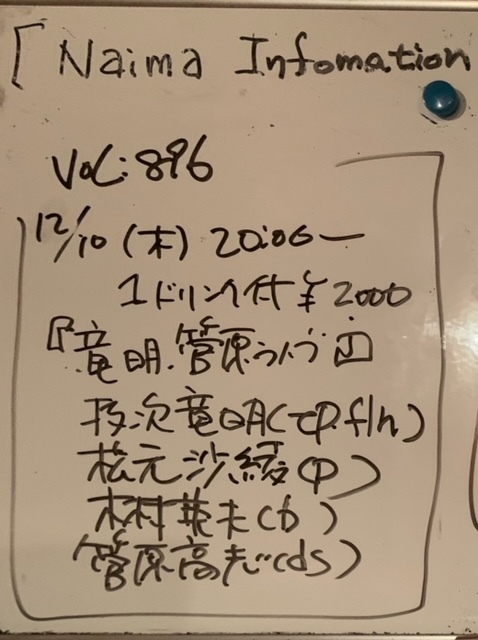 「Naima Infomation
Vol:896
12/10(木) 20:00ー
1ドリンク付¥2000
『竜明.管原ライブ』
次竜明(tp.flh)
松元沙綾(p)
村英夫(b)
管原高志(ds)